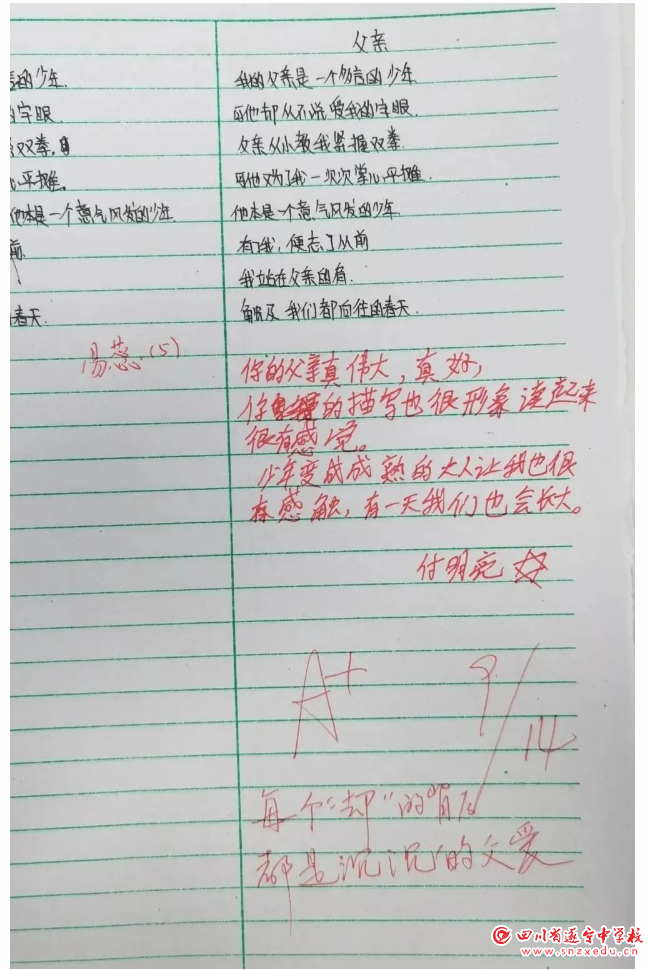 言的少年.
的字眼
双拳.
心平摊.
他本是一个意气风发的少年.
前.
春天.
汤蕊.(5)
父亲
我的父亲是一个勿言的少年
可他却从不说爱我的字眼
父亲从小教我紧握双拳.
可他又为了我一次次掌心平摊.
他本是一个意气风发的少年.
有了我,便忘了从前
我站在父亲的肩
触及我们都向往的春天.
你的父亲真伟大,真好,
你的描写也很形象读起来
很有感觉。
少年变成成熟的大人让我也很
有感触,有一天我们也会长大。
付明宛
A+ 9/14
每个“却”的背后
都是沉沉的父爱
四川省遂宁中学校
www.snzxedu.cn